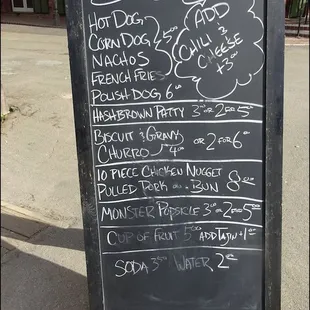 HOT DOG
CORN DOG
NACHOS
FRENCH FRIES
5.00
ADD
CHILI &
CHEESE
+3.00
POLISH DOG 6.00
HASHBROWN PATTY 3.00 OR 2 FOR 5.00
BISCUIT & GRAVY
CHURRO 4.00 OR 2 FOR 6.00
10 PIECE CHICKEN NUGGET
PULLED PORK ON BUN 8.00
MONSTER POPSICLE 3.00 OR 2 FOR 5.00
CUP OF FRUIT 5.00 ADD TAJIN +1.00
SODA 3.00 WATER 2.00